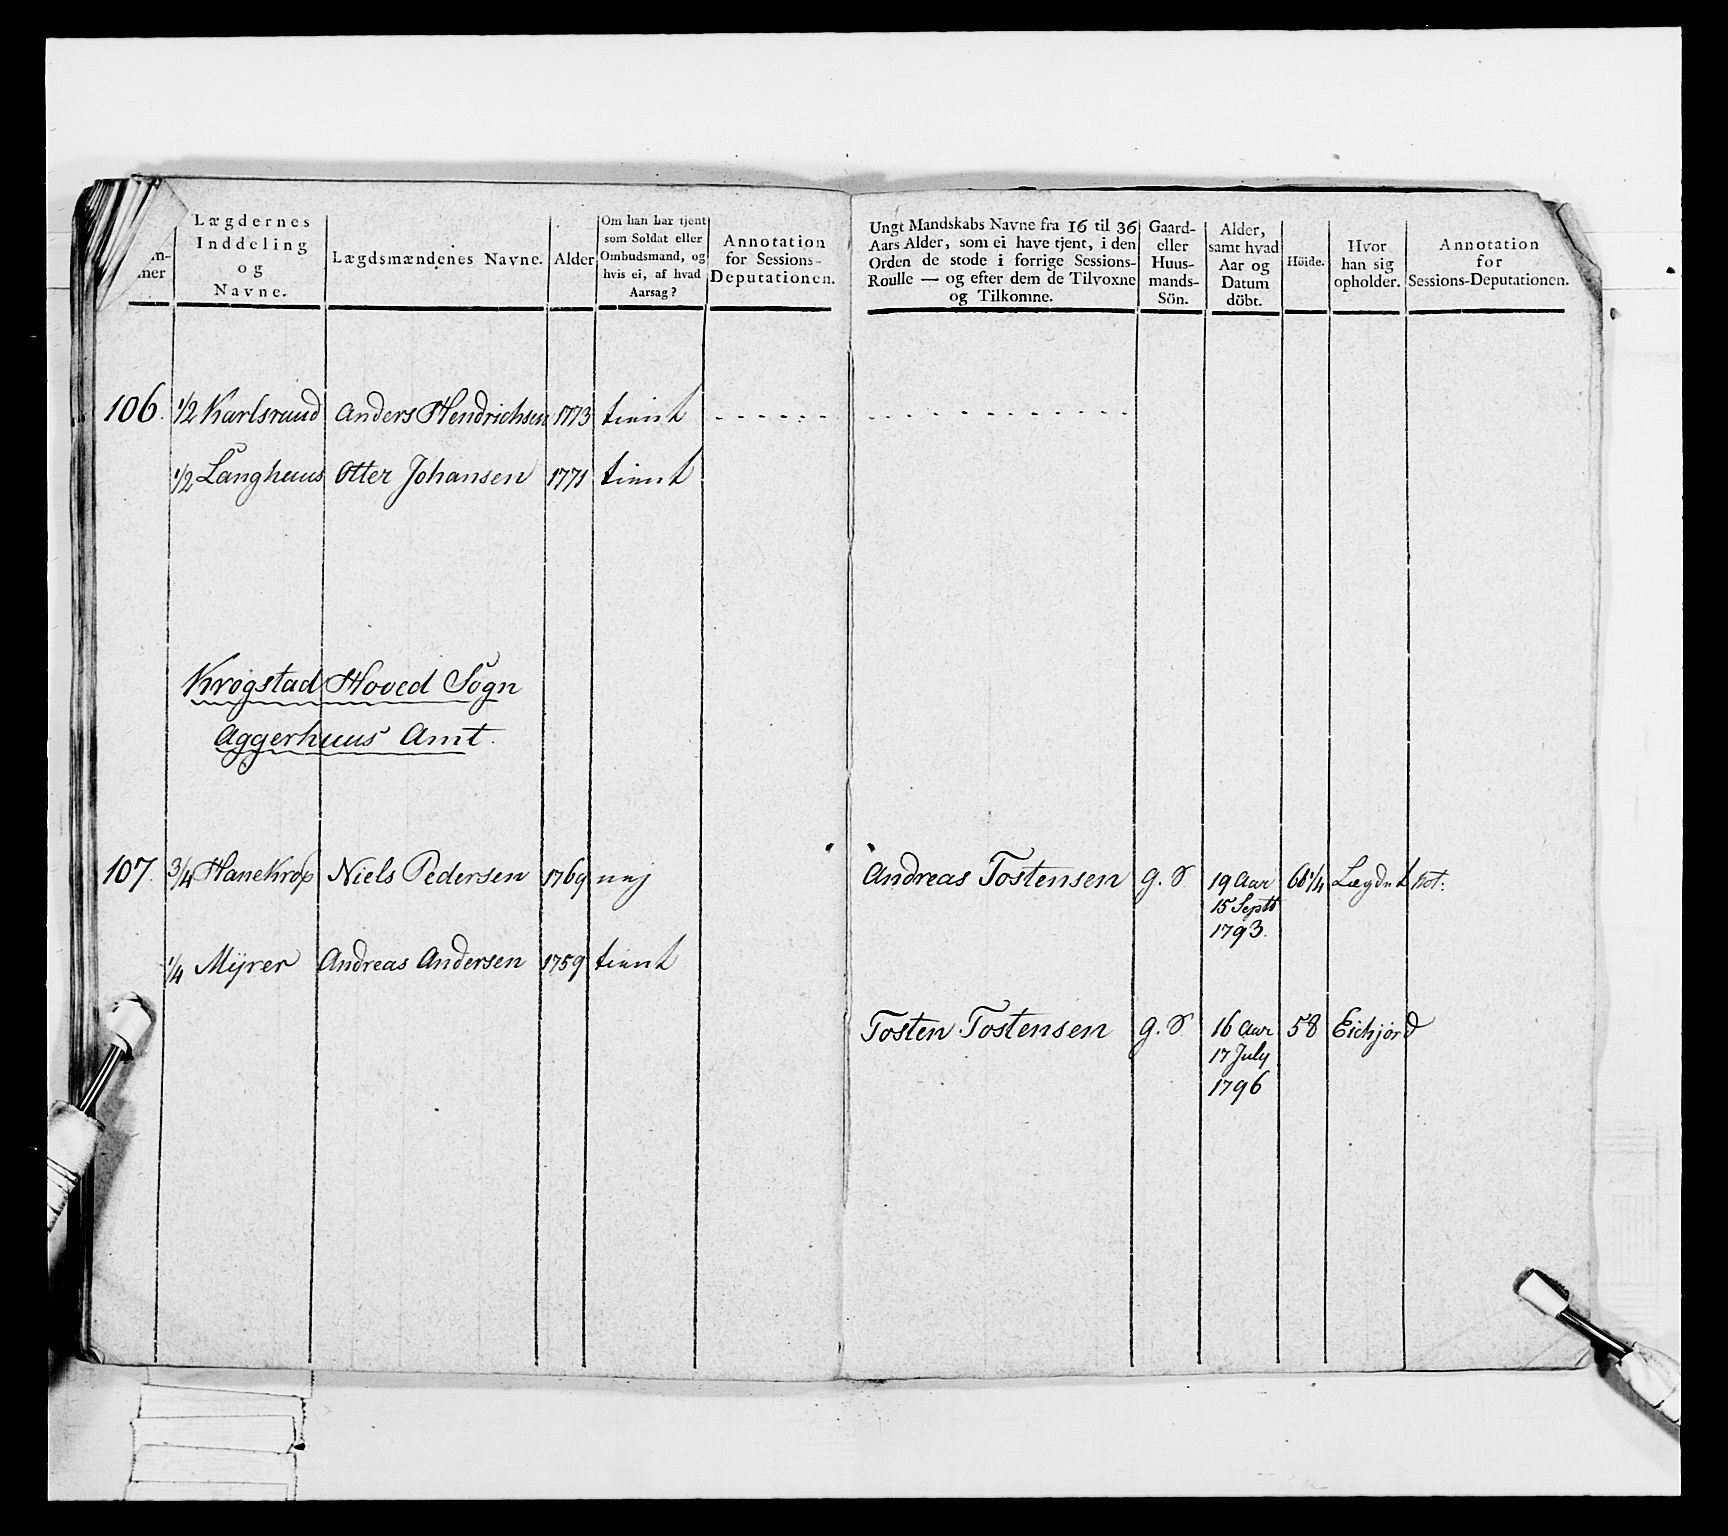 Lægdernes
Inddeling
og
Navne.
Lægdsmændenes Navne.
Alder
Om han har tjent
som Soldat eller
Ombudsmand, og
hvis ei, af hvad
Aarsag?
Annotation
for Sessions-
Deputationen.
106. 1/2 Karlsruud Anders Hendrichsen 1773 tient
1/2 Langhuus Otter Johansen 1771 tient
Krogstad Hoved Sogn
Aggerhuus Amt.
107. 3/4 Hanekrop Niels Pedersen 1769 nej
1/4 Mijrer Andreas Andersen 1759 tient
Ungt Mandskabs Navne fra 16 til 36
Aars Alder, som ei have tjent, i den
Orden de stode i forrige Sessions-
Roulle — og efter dem de Tilvoxne
og Tilkomne.
Gaard-
eller
Huus-
mands-
Sön.
Alder,
samt hvad
Aar og
Datum
döbt.
Höide.
Hvor
han sig
opholder.
Annotation
for
Sessions-Deputationen.
Andreas Tostensen g. S 19 Aar
15 Septb
1793.
Tosten Tostensen g. S 16 Aar 58
17 July
1796